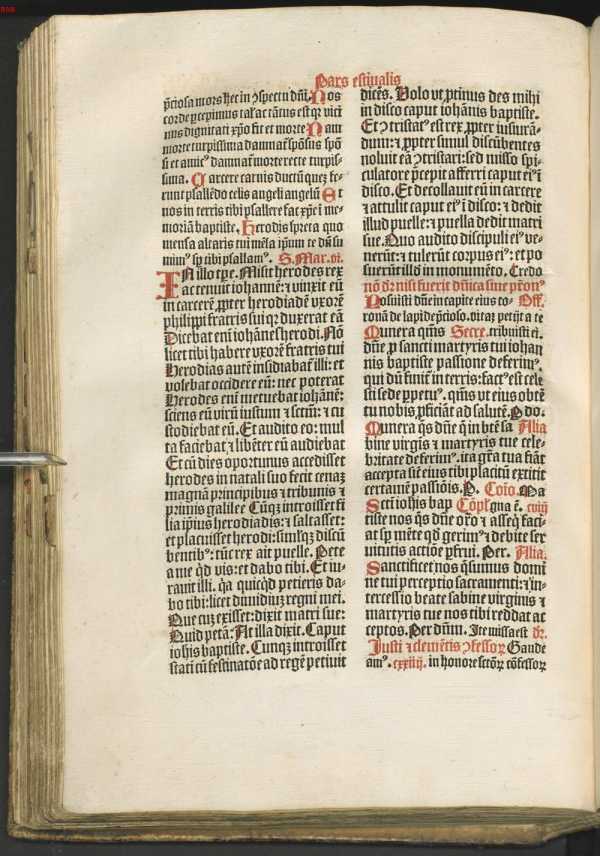 Pars estiualis
p̄ciosa mors hec in ꝯspectu dn̄i. Nos
corde p̄cepimus tal'ac tātus est qr̄ vici
nus dignitati xp̄o fit et morte Nam
morte turpissima damnat̄ spōsus spō
si et amicꝰ damnat̄ morte recte turpis-
sima. Carcere carnis ductū queꝫ fe-
runt psallēdo celis angeli angelū Et
nos in terris tibi psallere fac xp̄e ī me-
moriā baptiste. Herodis spreta quo
mensa altaris tui mēsa ip̄um te dn̄ su
mimꝰ sp̄ tibi psallamꝰ. S. Mar. vi.
IN illo tꝑe. Misit herodes rex
ac tenuit iohannē: ⁊ vinxit eū
in carcerē ꝓpter herodiadē vxorē
philippi fratris sui qꝛ duxerat eā
Dicebat em̄ iohānes herodi. Nō
licet tibi habere vxorē fratris tui
Herodias autē insidiabat̄ illi: et
volebat occidere eū: nec poterat
Herodes em̄ metuebat iohānē:
sciens eū virū iustum ⁊ sctm̄: ⁊ cu
stodiebat eū. Et audito eo: mul
ta faciebat ⁊ libēter eū audiebat
Et cū dies oportunus accedisset
herodes in natali suo fecit cenaꝫ
magnā principibus ⁊ tribunis ⁊
primis galilee Cūqꝫ introisset fi
lia ip̄ius herodiadis: ⁊ saltasset:
et placuisset herodi: simulqꝫ discū
bentibꝰ: tūc rex ait puelle. Pete
a me qd̄ vis: et dabo tibi. Et iu-
rauit illi. q̄a quicq̄d petieris da-
bo tibi: licet dimidiuꝫ regni mei.
Que cuꝫ exisset: dixit matri sue:
Quid petā: At illa dixit. Caput
iohis baptiste. Cunqꝫ introisset
stati cū festinatōe ad regē petiuit
dicēs. Volo vt ꝓtinus des mihi
in disco caput iohānis baptiste.
Et ꝯtristatꝰ est rex ꝓpter iusiurā-
dum: ⁊ ꝓpter simul discūbentes
noluit eā ꝯtristari: sed misso spi-
culatore p̄cepit afferri caput eiꝰ ī
disco. Et decollauit eū in carcere
⁊ attulit caput eiꝰ ī disco: ⁊ dedit
illud puelle: ⁊ puella dedit matri
sue. Quo audito discipuli eiꝰ ve-
nerūt: ⁊ tulerūt corpus eiꝰ: et po
suerūt illd̄ in monumēto. Credo
nō dr̄ nisi fuerit dn̄ica siue p̄ronꝰ
Posuisti dn̄e in capite eius co- Off.
ronā de lapide p̄cioso. vitaꝫ petijt a te
Munera qm̄s Secre. tribuisti ei.
dn̄e ꝓ sancti martyris tui iohan
nis baptiste passione deferimꝰ.
qui dū finit̄ in terris: factꝰ est cele
sti sede ꝑpetuꝰ. qm̄s vt eius obtē
tu nobis ꝓficiāt ad salutē. P do.
Munera qs̄ dn̄e q̄ in btē sa Alia
bine virgis ⁊ martyris tue cele-
britate deferimꝰ. ita gr̄a tua fiāt
accepta sit eius tibi placitū extitit
certamē passiōis. P. Cōio. Ma
Scti iohis bap Cōpl' gna ē. cviij
tiste nos qs̄ dn̄e oro ⁊ asseq̄ faci-
at sp̄ mēte qd̄ gerimꝰ ⁊ debite ser
uitutis actiōe ꝑfrui. Per. Alia.
Sanctificet nos q̄sumus domi
ne tui perceptio sacramenti: ⁊ in-
tercessio beate sabine virginis ⁊
martyris tue nos tibi reddat ac
ceptos. Per dūm. Ite missa est dr̄.
Justi ⁊ clemētis ꝯfessoꝝ Gaude
amꝰ. cxxiij. in honore sctōꝝ cōfessoꝝ